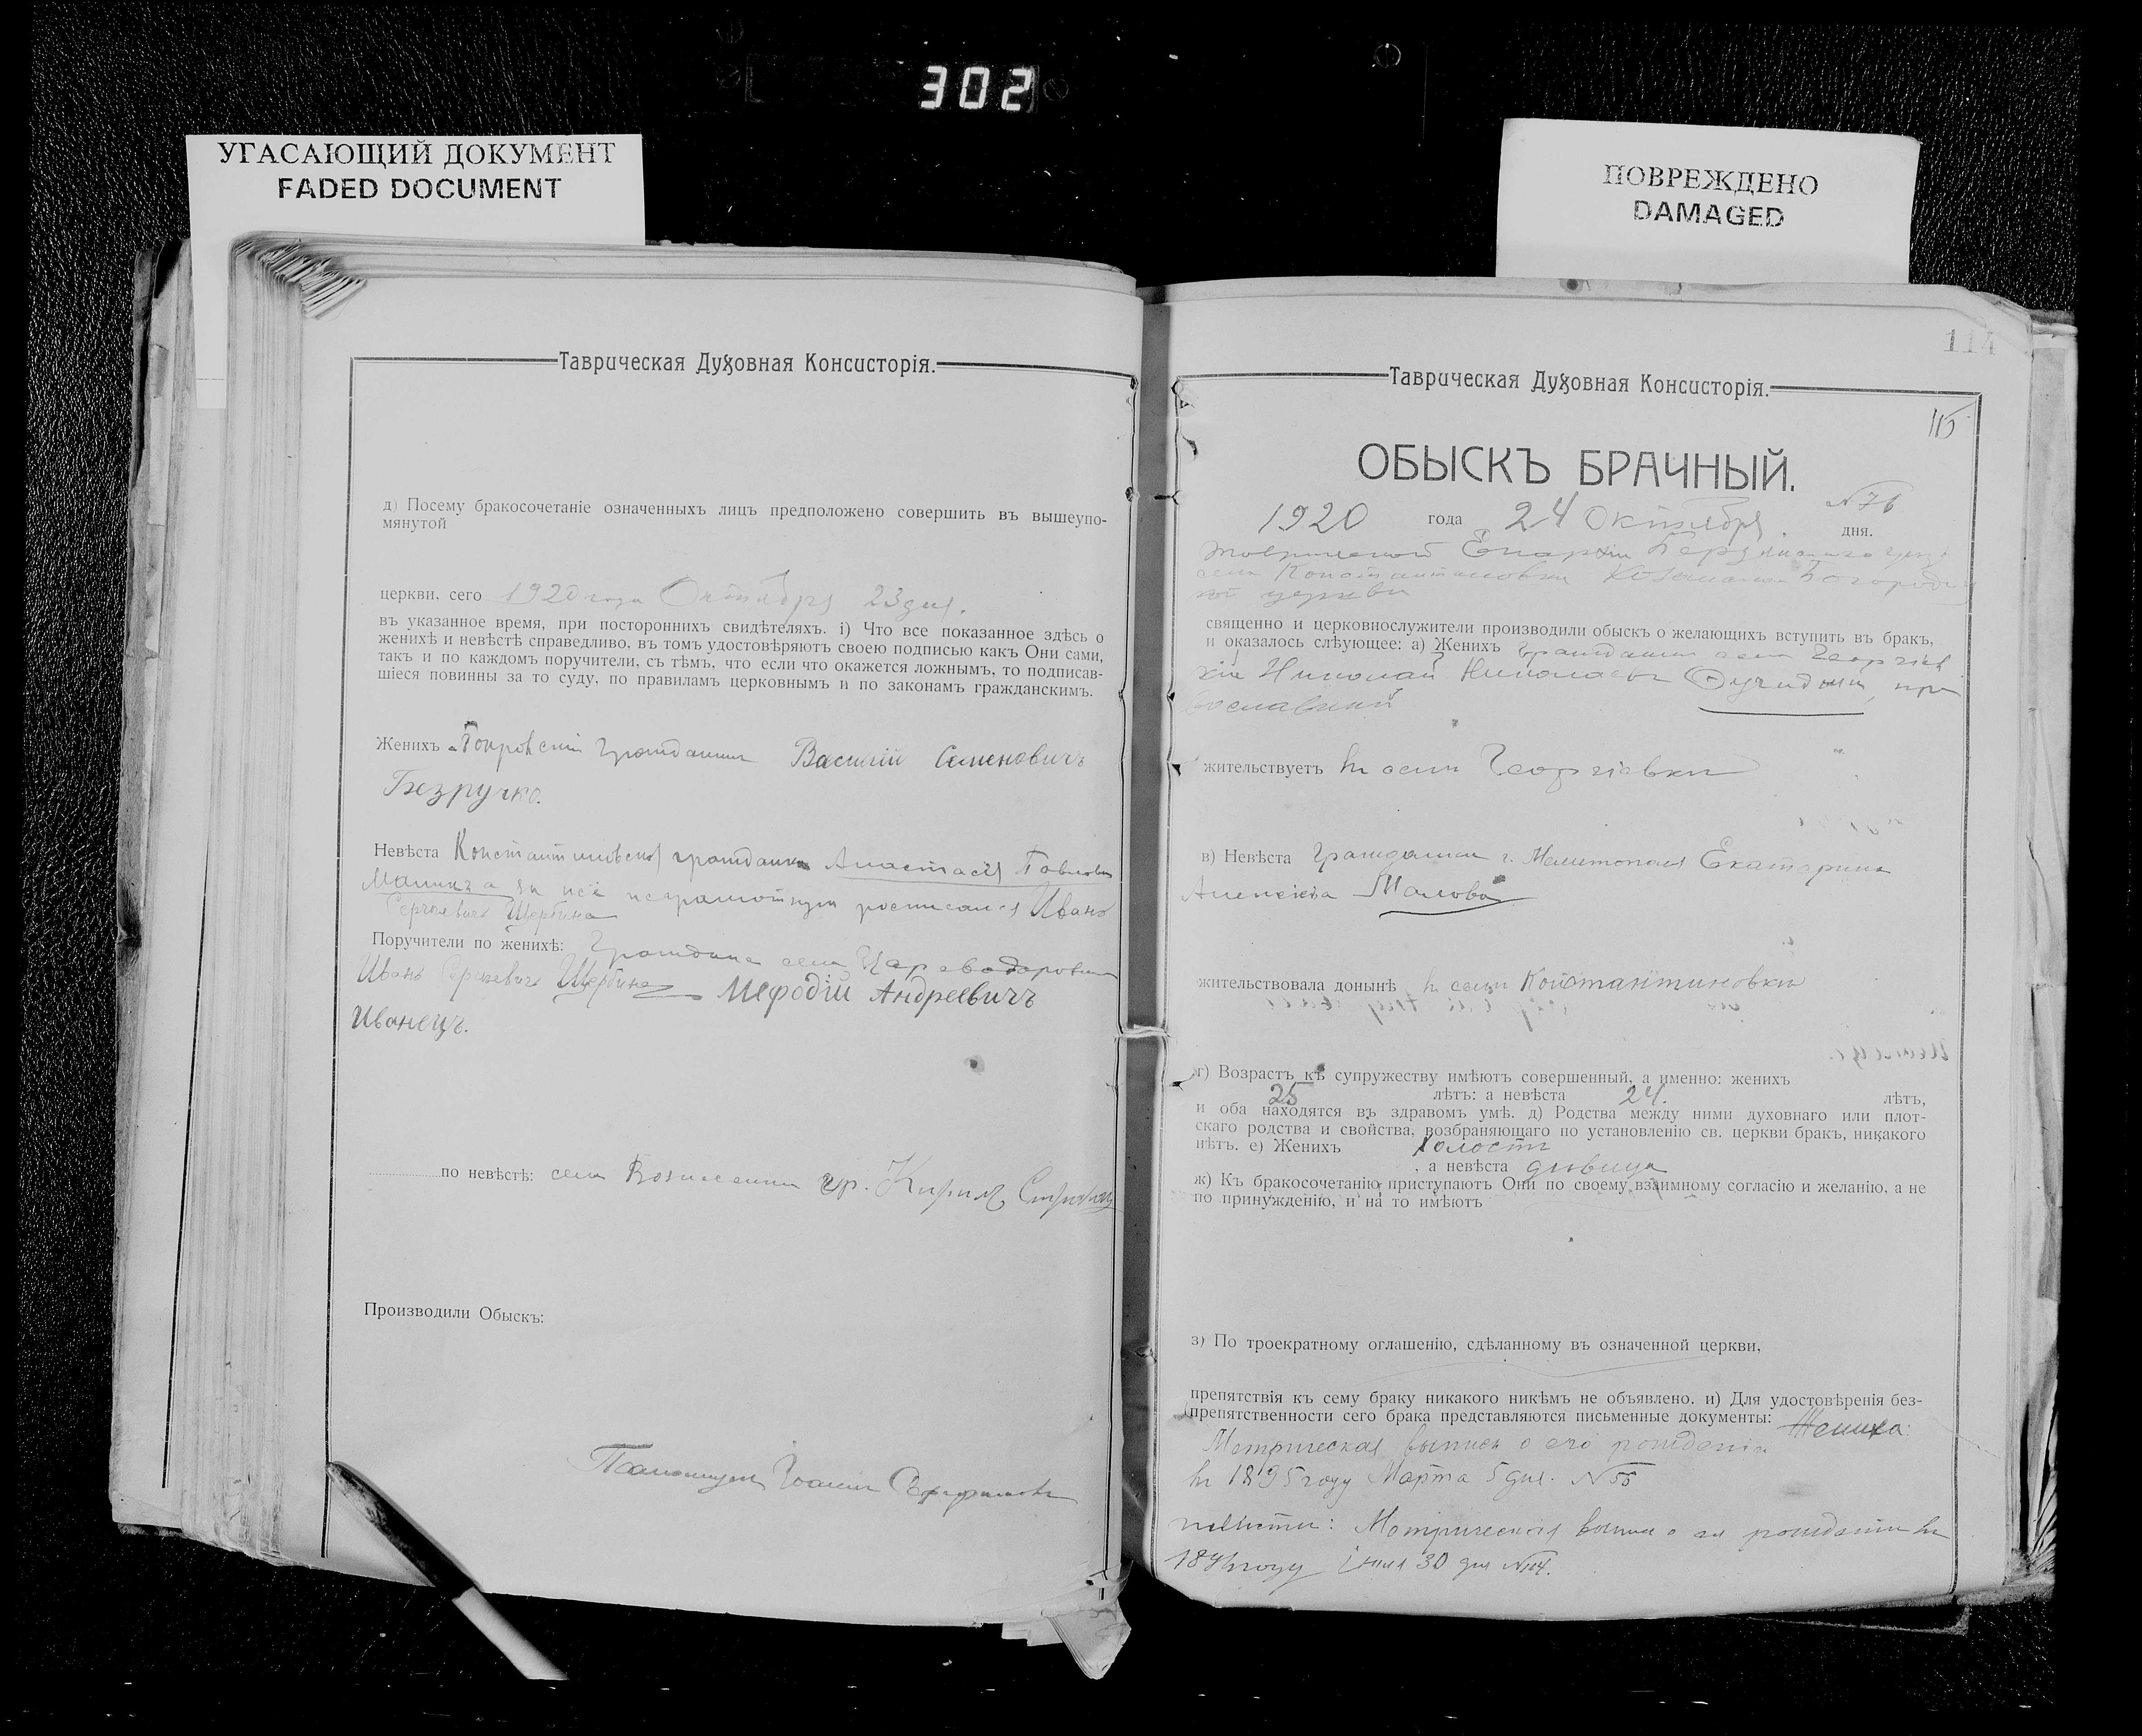 302
УГАСАЮЩИЙ ДОКУМЕНТ
FADED DOCUMENT
ПОВРЕЖДЕНО
DAMAGED
Таврическая Духовная Консисторія.
д) Посему бракосочетаніе означенныхъ лицъ предположено совершить въ вышеупо-
мянутой
церкви, сего 1920 года Октября 23 дня.
въ указанное время, при постороннихъ свидѣтеляхъ. і) Что все показанное здѣсь о
женихѣ и невѣстѣ справедливо, въ томъ удостовѣряютъ своею подписью какъ Они сами,
такъ и по каждомъ поручители, съ тѣмъ, что если что окажется ложнымъ, то подписав-
шіеся повинны за то суду, по правиламъ церковнымъ и по законамъ гражданскимъ.
Женихъ Покровскій гражданинъ Василій Семеновичъ
Безручко.
Невѣста Константиновской гражданка Анастасія Павлова
за неё неграмотную росписался Иванъ
Сергѣевичъ Щербина
Поручители по женихѣ: Гражданинъ села
Иванъ Сергѣевичъ Щербина Мефодій Андреевичъ
Иванецъ.
по невѣстѣ: села Вознесенки гр. Кирилъ
Производили Обыскъ:
Іоаннъ
114
Таврическая Духовная Консисторія.
115
ОБЫСКЪ БРАЧНЫЙ.
N 76
1920 года 24 Октября дня.
Таврической Епархіи Бердянскаго уезда
села Константиновки Богородич
ной церкви
священно и церковнослужители производили обыскъ о желающихъ вступить въ бракъ,
и оказалось слѣующее: а) Женихъ гражданинъ села Георгіев
ки Николай Николаевъ православный
жительствуетъ въ селѣ Георгіевки
в) Невѣста Гражданка г. Мелитополя Екатерина
Алексѣева Малова
жительствовала донынѣ въ селѣ Константиновки
г) Возрастъ къ супружеству имѣютъ совершенный, а именно: женихъ
25 лѣтъ: а невѣста 24. лѣтъ,
и оба находятся въ здравомъ умѣ. д) Родства между ними духовнаго или плот-
скаго родства и свойства, возбраняющаго по установленію св. церкви бракъ, никакого
нѣтъ. е) Женихъ холостъ
, а невѣста дѣвица
ж) Къ бракосочетанію приступаютъ Они по своему взаимному согласію и желанію, а не
по принужденію, и на то имѣютъ
з) По троекратному оглашенію, сдѣланному въ означенной церкви,
препятствія къ сему браку никакого никѣмъ не объявлено. и) Для удостовѣренія без-
препятственности сего брака представляются письменные документы: Жениха:
Метрическая выпись о его рожденіи
въ 1895 году Марта 5 дня. N 55
невѣсты: Метрическая выпись о ея рожденіи въ
году 30 дня N 114.